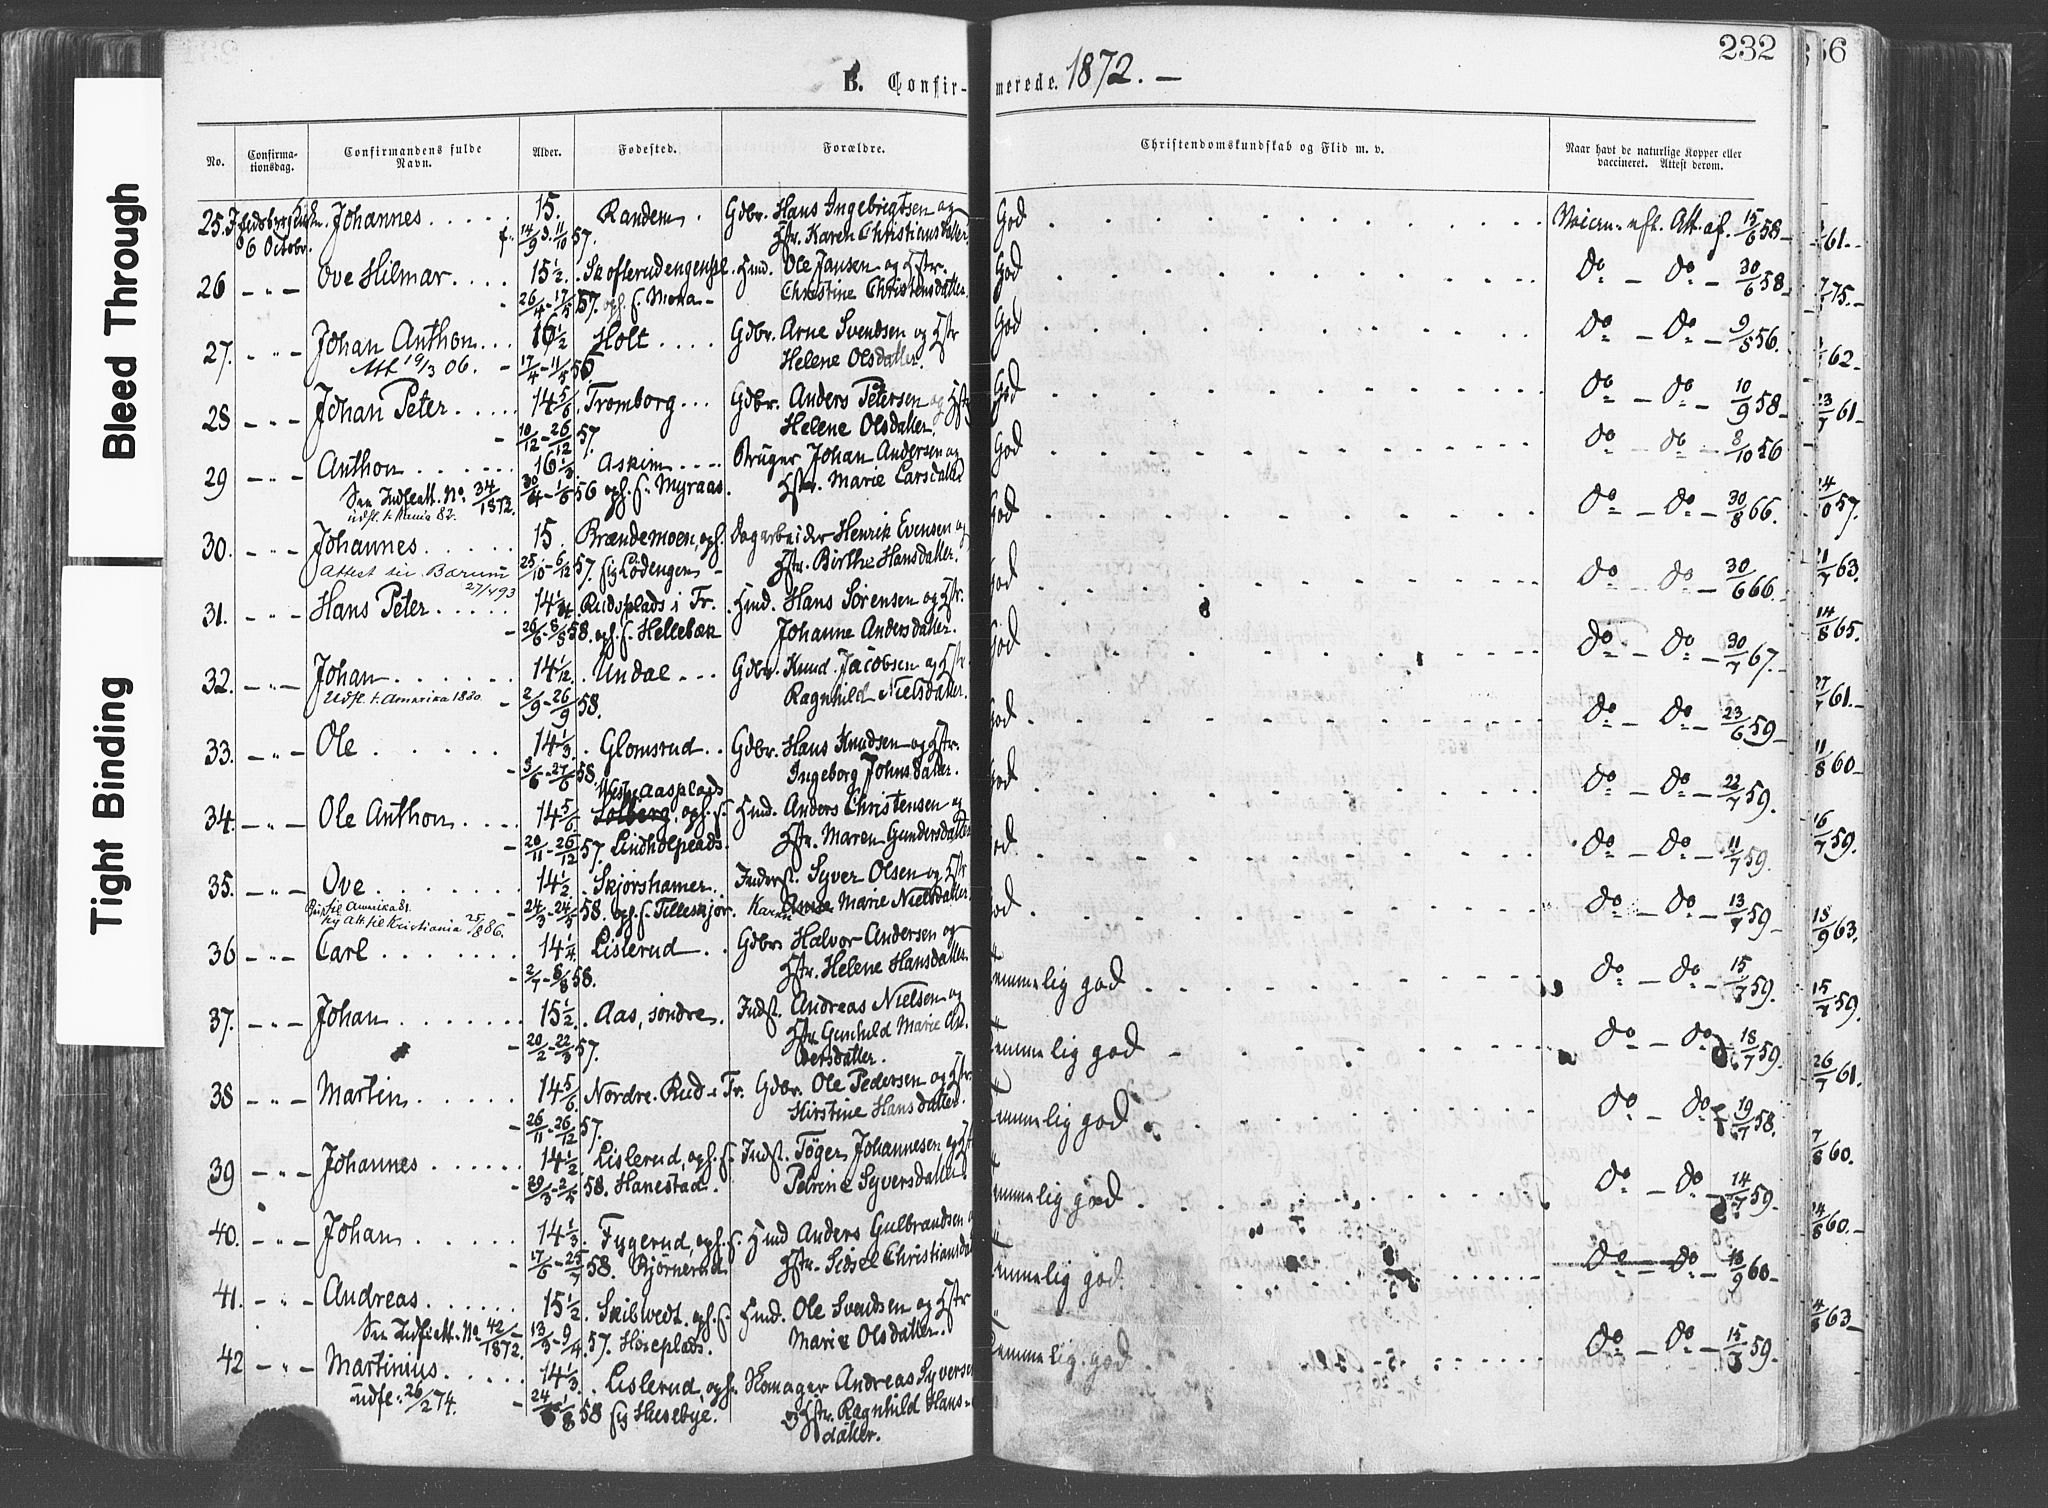 Bleed Through
Tight Binding
232
56
B. Confir- merede. 1872. –
No. Confirma-tionsdag. Confirmandens fulde Navn. Alder. Fødested. Forældre. Christendomskundskab og Flid m. v. Naar havt de naturlige Kopper eller vaccineret. Attest derom.
25. Johannes. 15. Randem. Gdbr. Hans Ingebrigtsen og God Att. af. 15/6 58
6 Octobr. f. 14/9 d. 11/10 57. Hstr. Karen Christiansdatter.
26 – „ – Ove Hilmar. 15 1/2. Skofterudengen, Hmd. Ole Jansen og Hstr. God do – do – 30/6 58
26/4 - 17/5 57. oph. f. Mona – Christine Christensdatter.
27. – „ – Johan Anthon. 16 1/2 Holt. Gdbr. Arne Svendsen og Hstr God do – do – 9/8 56.
Att 19/3 06. 17/4 - 11/5 56 Helene Olsdatter.
28 – „ – Johan Peter. 14 5/6. Tromborg. Gdbr. Anders Petersen og Hstr God do – do – 10/9 58
10/12 - 26/12 57. Helene Olsdatter.
29 – „ – Anthon. 16 1/3 Askim. Bruger Johan Andersen og God do – do – 8/10 56
See Indflett. No. 34/1872. 30/4 - 1/6 56 oph. f. Myraas. Hstr. Marie Larsdatter
30. – „ – Johannes. 15. Brændemoen, oph. Dagarbeider Henrik Evensen og God do – do – 30/8 66.
Attest til Bærum 27/4 93 25/10 - 6/12 57. sig Lødengen – Hstr. Birthe Hansdatter.
31. – „ – Hans Peter. 14 1/4. Rudsplads i Tr. Hmd. Hans Sørensen og Hstr. God do – do – 30/6 66.
26/6 - 8/8 58. oph. f. Hellebæk Johanne Andersdatter.
32. – „ – Johan. 14 1/12. Undal. Gdbr. Knud Jacobsen og Hstr. God do – do – 30/7 67.
Udfl. t. Amerika 1880. 2/9 - 26/9 58. Ragnhild Nielsdatter.
33. – „ – Ole. 14 1/3. Glomsrud. Gdbr. Hans Knudsen og Hstr. God do – do – 23/6 59
3/6 - 27/6 58. Ingeborg Johnsdatter.
Aasplads
34. – „ – Ole Anthon. 14 5/6 Solberg, oph. f. Hmd. Anders Christensen og God do – do – 22/7 59.
20/11 - 26/12 57. Lindholplads. Hstr. Maren Gundersdatter
35. – „ – Ove. 14 1/2. Skjørshamer. Inderst. Syver Olsen og Hstr God do – do – 11/7 59.
til Amerika 81. 24/3 - 24/5 58. oph. f. Tilleskjør. Karen Anne Marie Nielsdatter
ny Att til Kristiania 25/8 86.
36 – „ – Carl. 14 1/4. Lislerud. Gdbr. Halvor Andersen og God do – do – 13/7 59
2/7 - 8/8 58. Hstr. Helene Hansdatter
37. – „ – Johan. 15 1/2. Aas, søndre. Indst. Andreas Nielsen og Temmelig god do – do – 15/7 59.
20/2 - 22/3 57. Hstr Gunhild Marie Andersdatter.
38 – „ – Martin. 14 5/6. Nordre. Rud i Tr. Gdbr. Ole Pedersen og Hstr. Temmelig god do – do 18/7 59.
26/11 - 26/12 57. Kirstine Hansdatter.
39 – „ – Johannes. 14 1/2. Lislerud, oph. f. Indst. Tøger Johannesen og Hstr Temmelig god do – do 19/7 58.
29/3 - 2/5 58. Hanestad. Petrine Syversdatter
40. – „ – Johan. 14 1/3. Fygerud, oph. f. Hmd Anders Gulbrandsen Temmelig god do – do – 14/7 59.
17/6 - 25/7 58. Bjørnerud Hstr. Sidsel Christiansdat
41. – „ – Andreas. 15 1/2. Skibvedt. oph. f. Hmd. Ole Svendsen og Hstr Temmelig god do – do – 18/9 60
See Indflett. No 42/1872. 13/3 - 9/4 57. Høieplads. Marie Olsdatter.
42 – „ – Martinius. 14 1/3. Lislerud, oph. Skomager Andreas Syversen Temmelig god do – do – 15/7 59.
udfl. 26/2 74. 58 sig Husebye. og Hstr. Ragnhild Hansdatter.